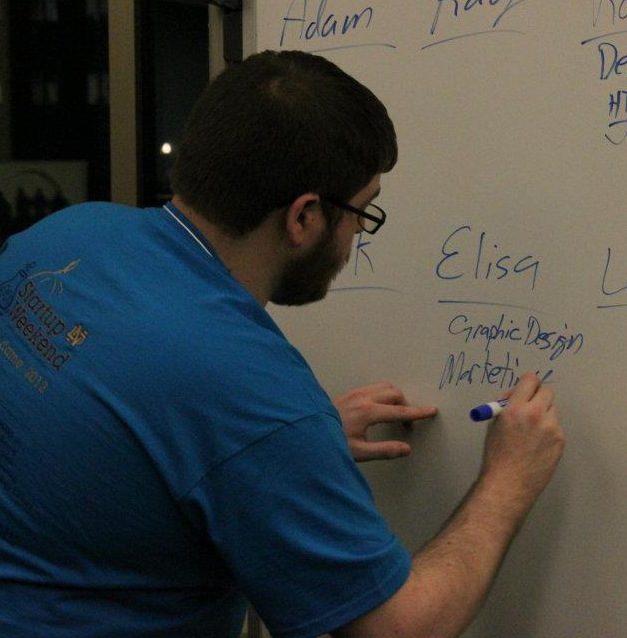 Adam
k
Elisa
Graphic Design
Marketing
De
HT
Startup
Weekend
2012